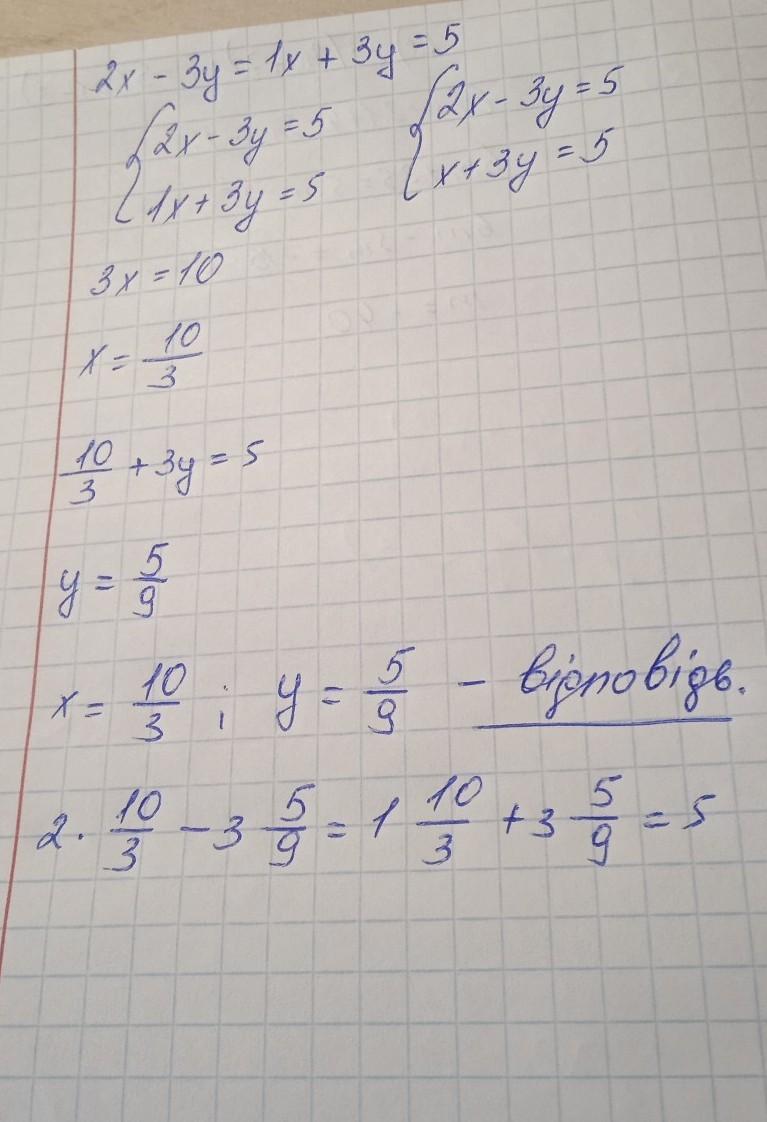 2x - 3y = 1x + 3y = 5
{2x - 3y = 5 {2x - 3y = 5
1x + 3y = 5 x + 3y = 5
3x = 10
x = 10/3
10/3 + 3y = 5
y = 5/9
x = 10/3 ; y = 5/9 - відповідь.
2 · 10/3 - 3 5/9 = 1 10/3 + 3 5/9 = 5